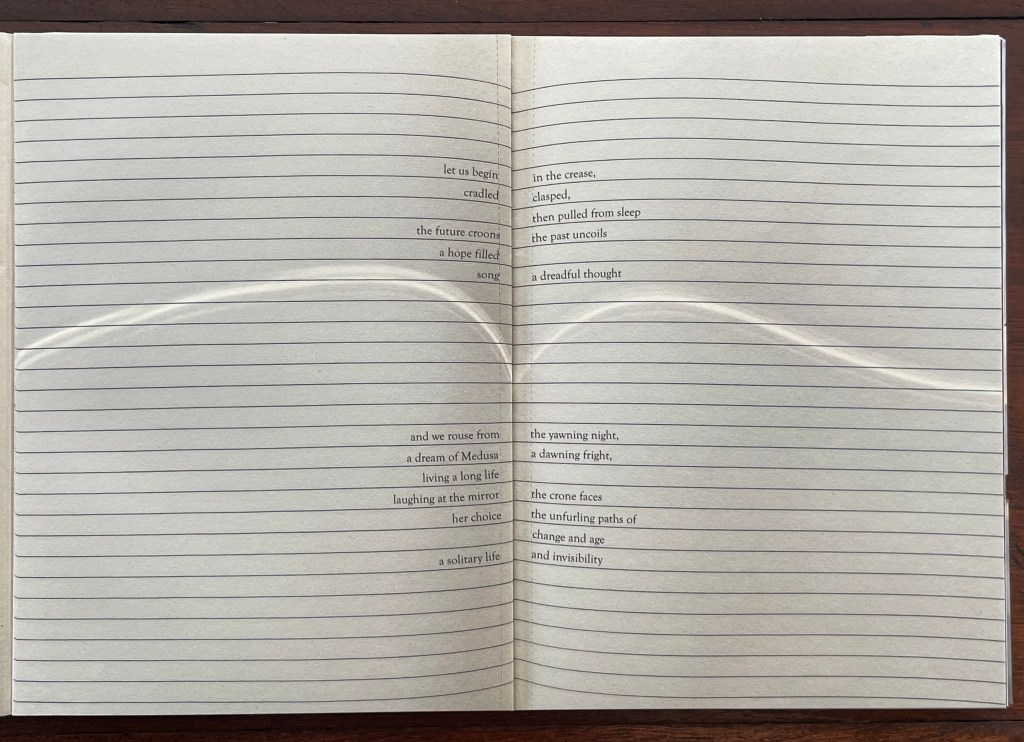 let us begin in the crease,
cradled clasped,
then pulled from sleep
the future croons the past uncoils
a hope filled
song a dreadful thought
and we rouse from the yawning night,
a dream of Medusa a dawning fright,
living a long life
laughing at the mirror the crone faces
her choice the unfurling paths of
change and age
a solitary life and invisibility